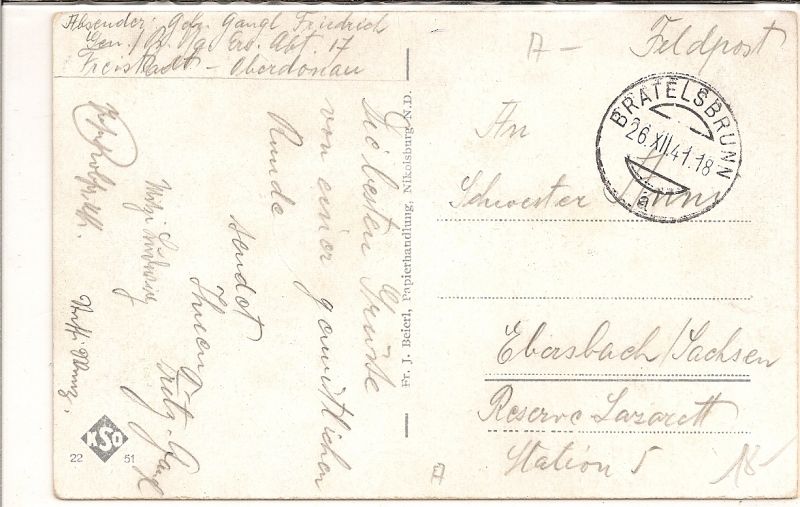 Absender: Gefr. Gangl Friedrich
Ers. Abt. 17
Freistadt - Oberdonau
Die besten Grüsse
von einer gemütlichen
Runde
sendet
Ihnen
Fritz Gangl
Fr. J. Beierl, Papierhandlung, Nikolsburg N.D.
KSO
22 51
A - Feldpost
BRATELSBRUNN
26.XII.41.18
a
An
Schwester
Ebersbach/Sachsen
Reserve Lazarett
Station 5
A
18-